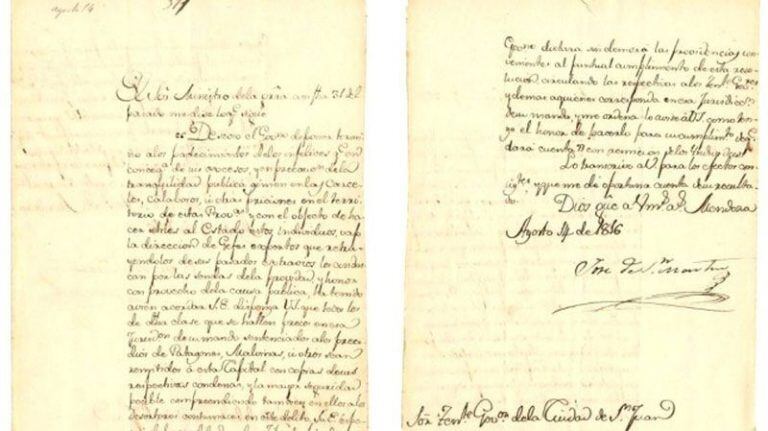 agosto 14
El Sor Ministro de la grã con fha 31 del
pasado me dice lo q.e sigue
Deseoso el Gov.no de poner termi
no a los padecimientos de los infelices q.e en
conseq.a de sus procesos, y en precaucion de la
tranquilidad publica gimen en las Carce
les, calabozos, u otras prisiones en el terri
torio de estas Prov.s y con el objeto de ha
cer utiles al Estado estos individuos, vajo
la direccion de Gefes expertos que retra
yendolos de sus pasados extravios los conduz
can por las sendas de la probidad y honor
con provecho de la causa publica, Ha tenido
a bien acordar S.E. disponga VS. que todos los
de dha clase que se hallen presos en esa
Jurisd.on de su mando sentenciados a los pre
sidios de Patagones, Malvinas, u otros sean
remitidos a esta Capital con copias de sus
respectivas condenas, y la mayor seguridad
posible comprendiendo tambien en ellos a los
desertores contumaces en este delito. S.E. espera
que VS. dictará sin demora las providencias con
venientes al puntual cumplimiento de esta reso
lucion circulando las respectivas a los Ten.tes Gov.res
y demas a quienes corresponda en esa Jurisdic.on
de su mando, y me ordena lo avise a VS. como ten
go el honor de hacerlo para su cumplim.to de q.e
dará cuenta
Lo transcrivo a V. para los efectos con
sig.tes y que me dé oportuna cuenta de su resulta
do.
Dios gũe a V. m.s a.s Mendoza
Agosto 14 de 1816
Jose de S.n Martin
Sor Ten.te Gov.or de la Ciudad de S.n Juan